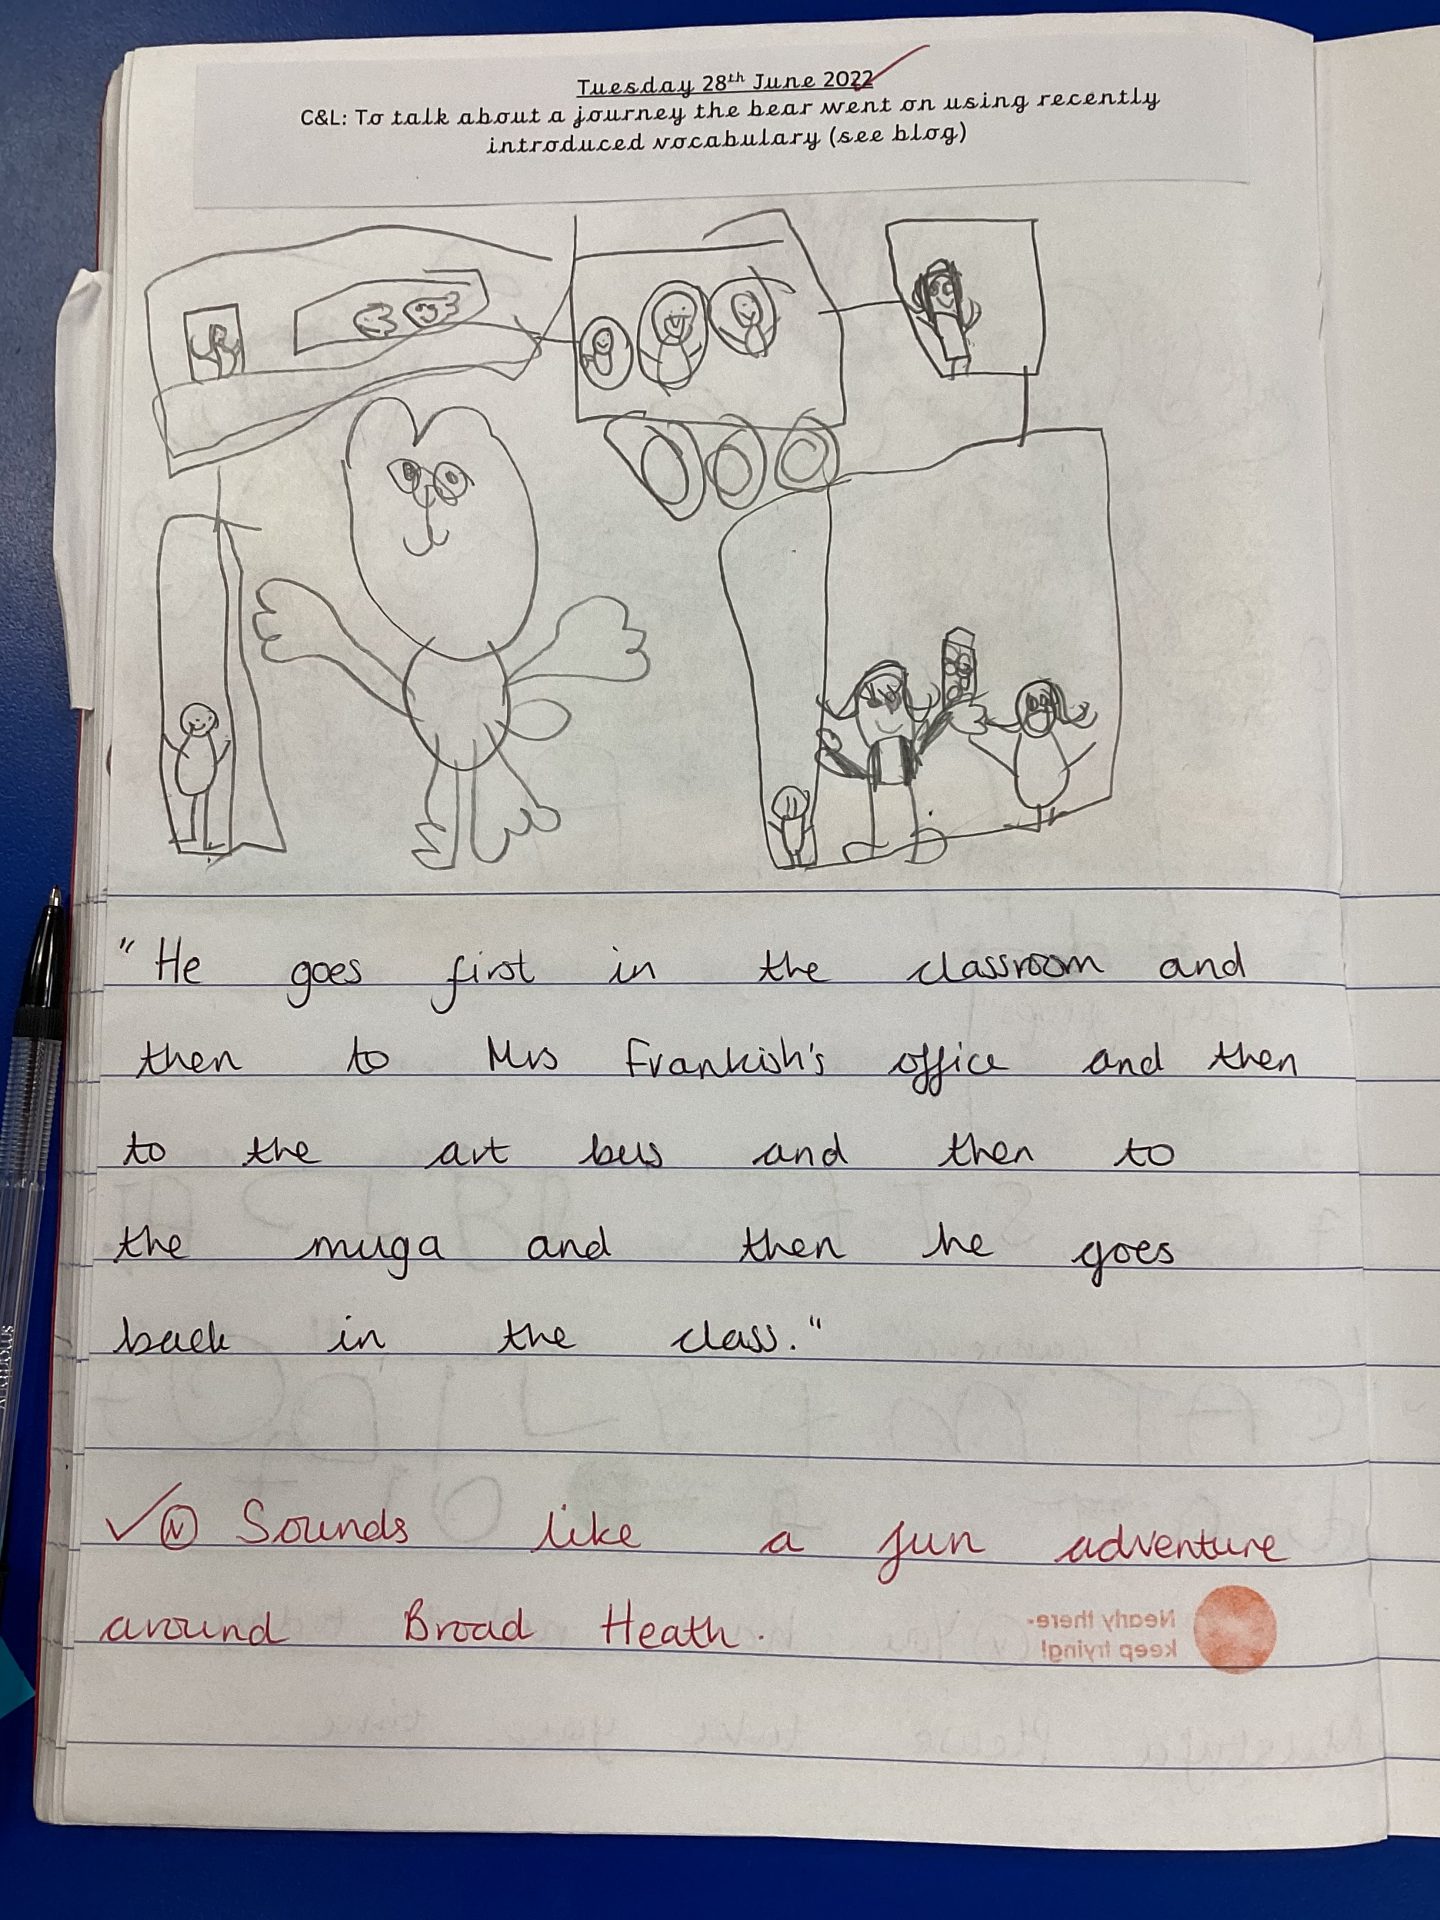 Tuesday 28th June 2022
C&L: To talk about a journey the bear went on using recently
introduced vocabulary (see blog)
"He goes first in the classroom and
then to Mrs Frankish's office and then
to the art bus and then to
the muga and then he goes
back in the class."
✓ N Sounds like a fun adventure
around Broad Heath.
Nearly there-
keep trying!